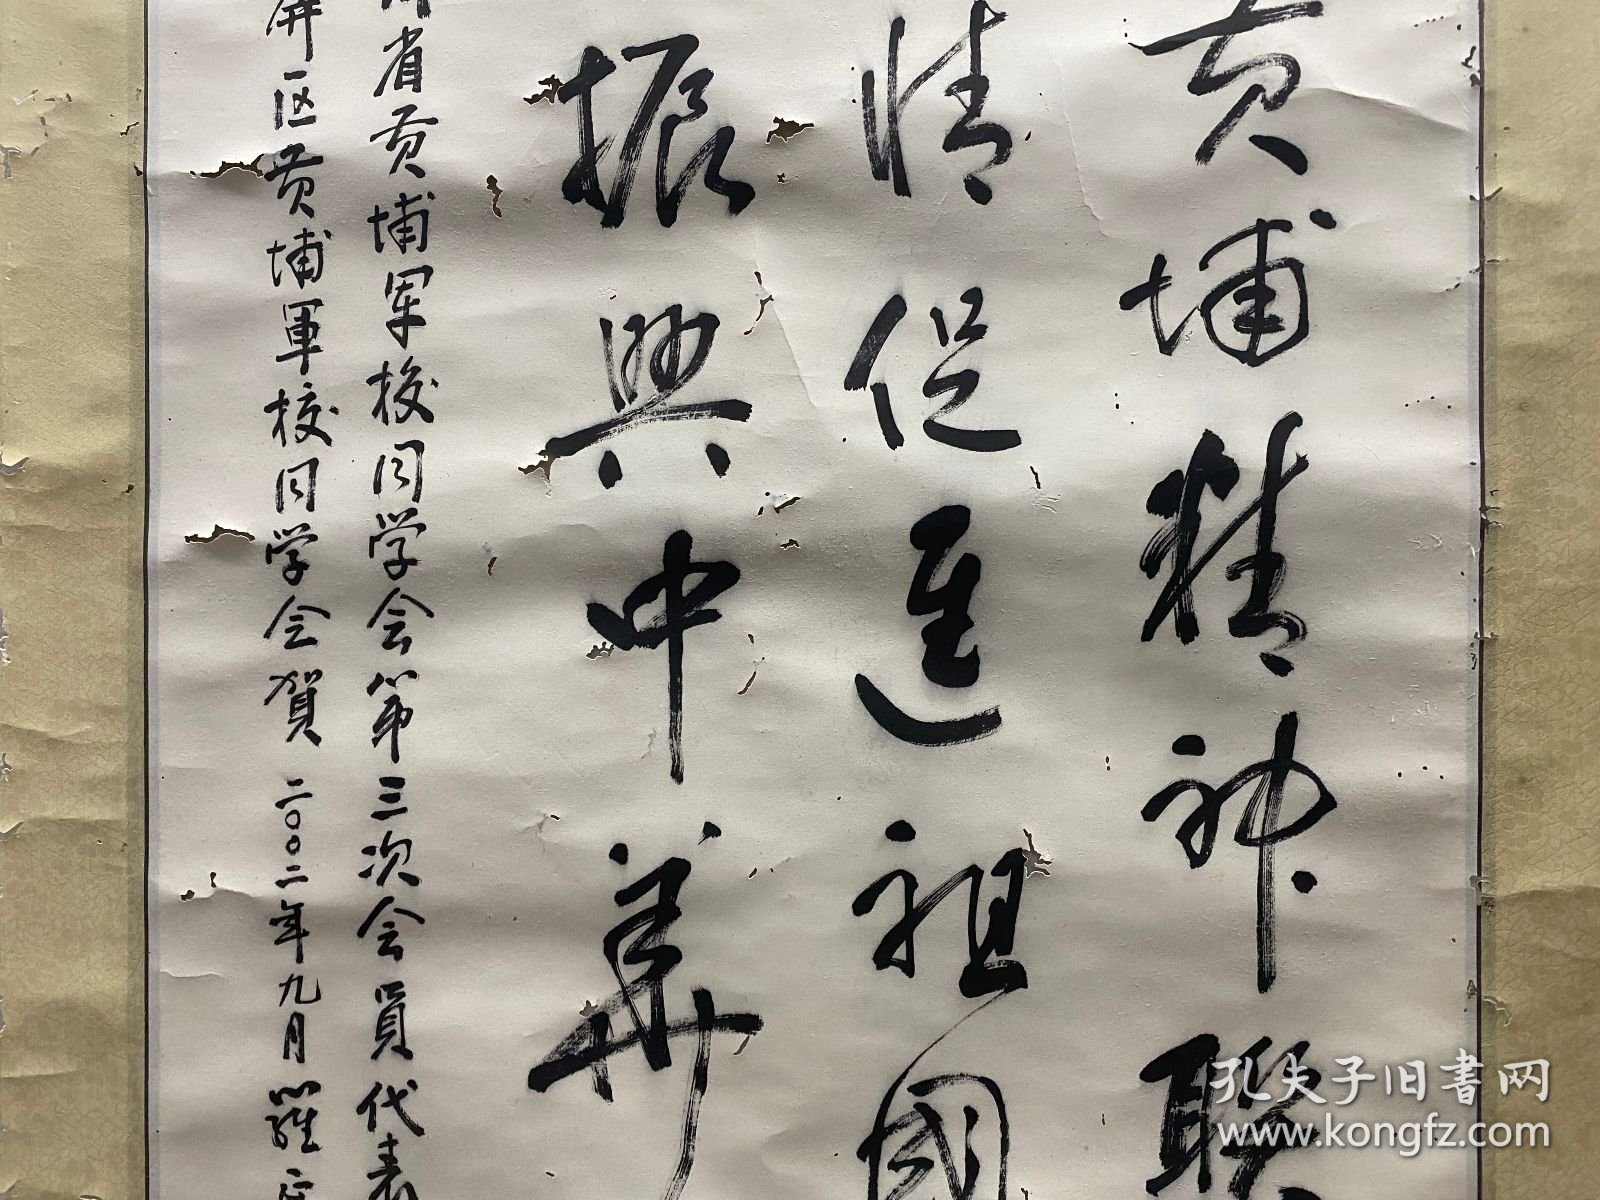 黄埔精神联
情促进祖國
振興中華
川省黄埔军校同学会第三次会員代表
屏区黄埔軍校同学会賀 二〇〇二年九月 羅正
孔夫子旧書网
www.kongfz.com